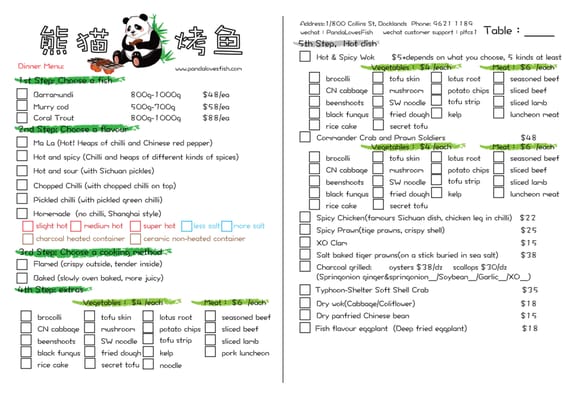 熊猫烤鱼
Dinner Menu:
www.pandalovesfish.com
1st Step: Choose a fish
Barramundi 800g-1000g $48/ea
Murry cod 500g-700g $58/ea
Coral Trout 800g-1000g $88/ea
2nd Step: Choose a flavour
Ma La (Hot! Heaps of chilli and Chinese red pepper)
Hot and spicy (Chilli and heaps of different kinds of spices)
Hot and sour (with Sichuan pickles)
Chopped Chilli (with chopped chilli on top)
Pickled chilli (with pickled green chilli)
Homemade (no chilli, Shanghai style)
slight hot medium hot super hot less salt more salt
charcoal heated container ceramic non-heated container
3rd Step: Choose a cooking method
Flamed (crispy outside, tender inside)
Baked (slowly oven baked, more juicy)
4th Step: extras
Vegetables : $4 /each Meat : $6 /each
brocolli tofu skin lotus root seasoned beef
CN cabbage mushroom potato chips sliced beef
beenshoots SW noodle tofu strip sliced lamb
black fungus fried dough kelp pork luncheon
rice cake secret tofu noodle
Address:1/800 Collins St, Docklands Phone: 9621 1189
wechat : PandaLovesFish wechat customer support : plfcs1
Table : ____
5th Step, Hot dish
Hot & Spicy Wok $5+depends on what you choose, 5 kinds at least
Vegetables : $4 /each Meat : $6 /each
brocolli tofu skin lotus root seasoned beef
CN cabbage mushroom potato chips sliced beef
beenshoots SW noodle tofu strip sliced lamb
black fungus fried dough kelp luncheon meat
rice cake secret tofu
Commander Crab and Prawn Soldiers $48
Vegetables : $4 /each Meat : $6 /each
brocolli tofu skin lotus root seasoned beef
CN cabbage mushroom potato chips sliced beef
beenshoots SW noodle tofu strip sliced lamb
black fungus fried dough kelp luncheon meat
rice cake secret tofu
Spicy Chicken(famours Sichuan dish, chicken leg in chilli) $22
Spicy Prawn(tige prawns, crispy shell) $25
XO Clam $15
Salt baked tiger prawns(on a stick buried in sea salt) $38
Charcoal grilled: oysters $38/dz scallops $30/dz
(Springonion ginger&springonion__/Soybean__/Garlic__/XO__)
Typhoon-Shelter Soft Shell Crab $35
Dry wok(Cabbage/Coliflower) $18
Dry panfried Chinese bean $15
Fish flavour eggplant (Deep fried eggplant) $18